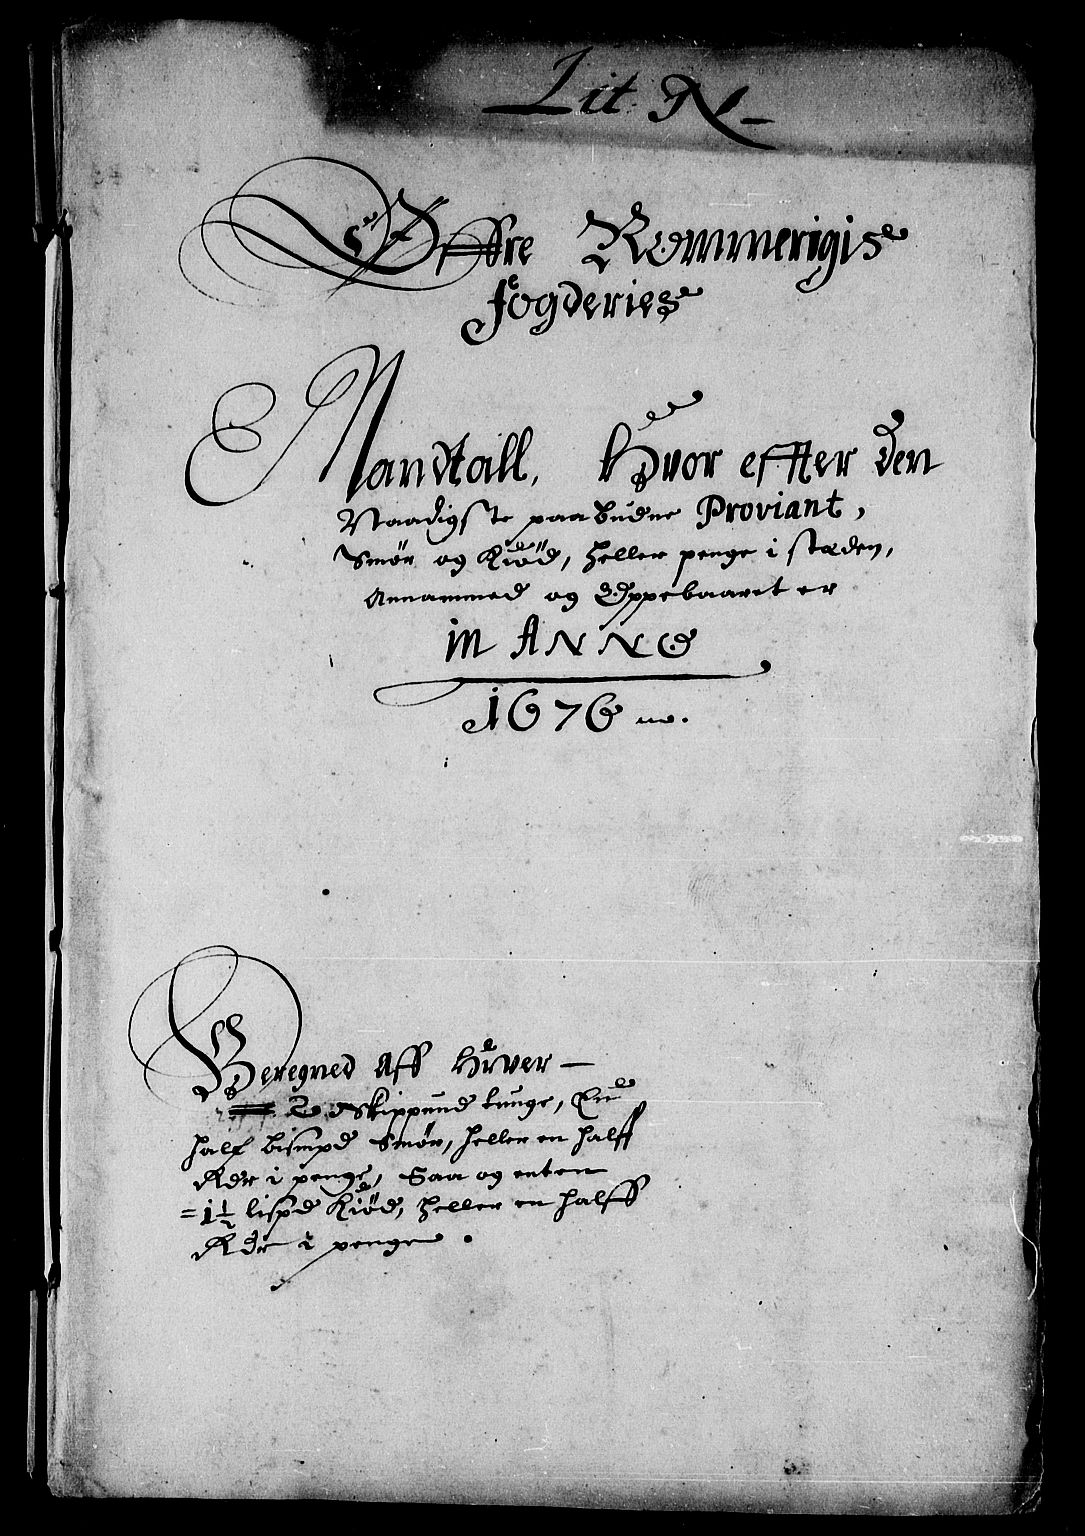 Lit: N –
Øffre Rommerigis
fogderies
Mandtall, Hvor effter den
Naadigste paabudne Proviant,
Smør og Kiød, heller penge i stæden,
Annammed og Oppebaaret er
in ANNO
1676
Beregned Aff Hver –
2 Skippund tunge, En
half bismpd Smør, heller en halff
Rdr i penge, Saa og enten
= 1½ lispd Kiød, heller en halff
Rdr i penge .